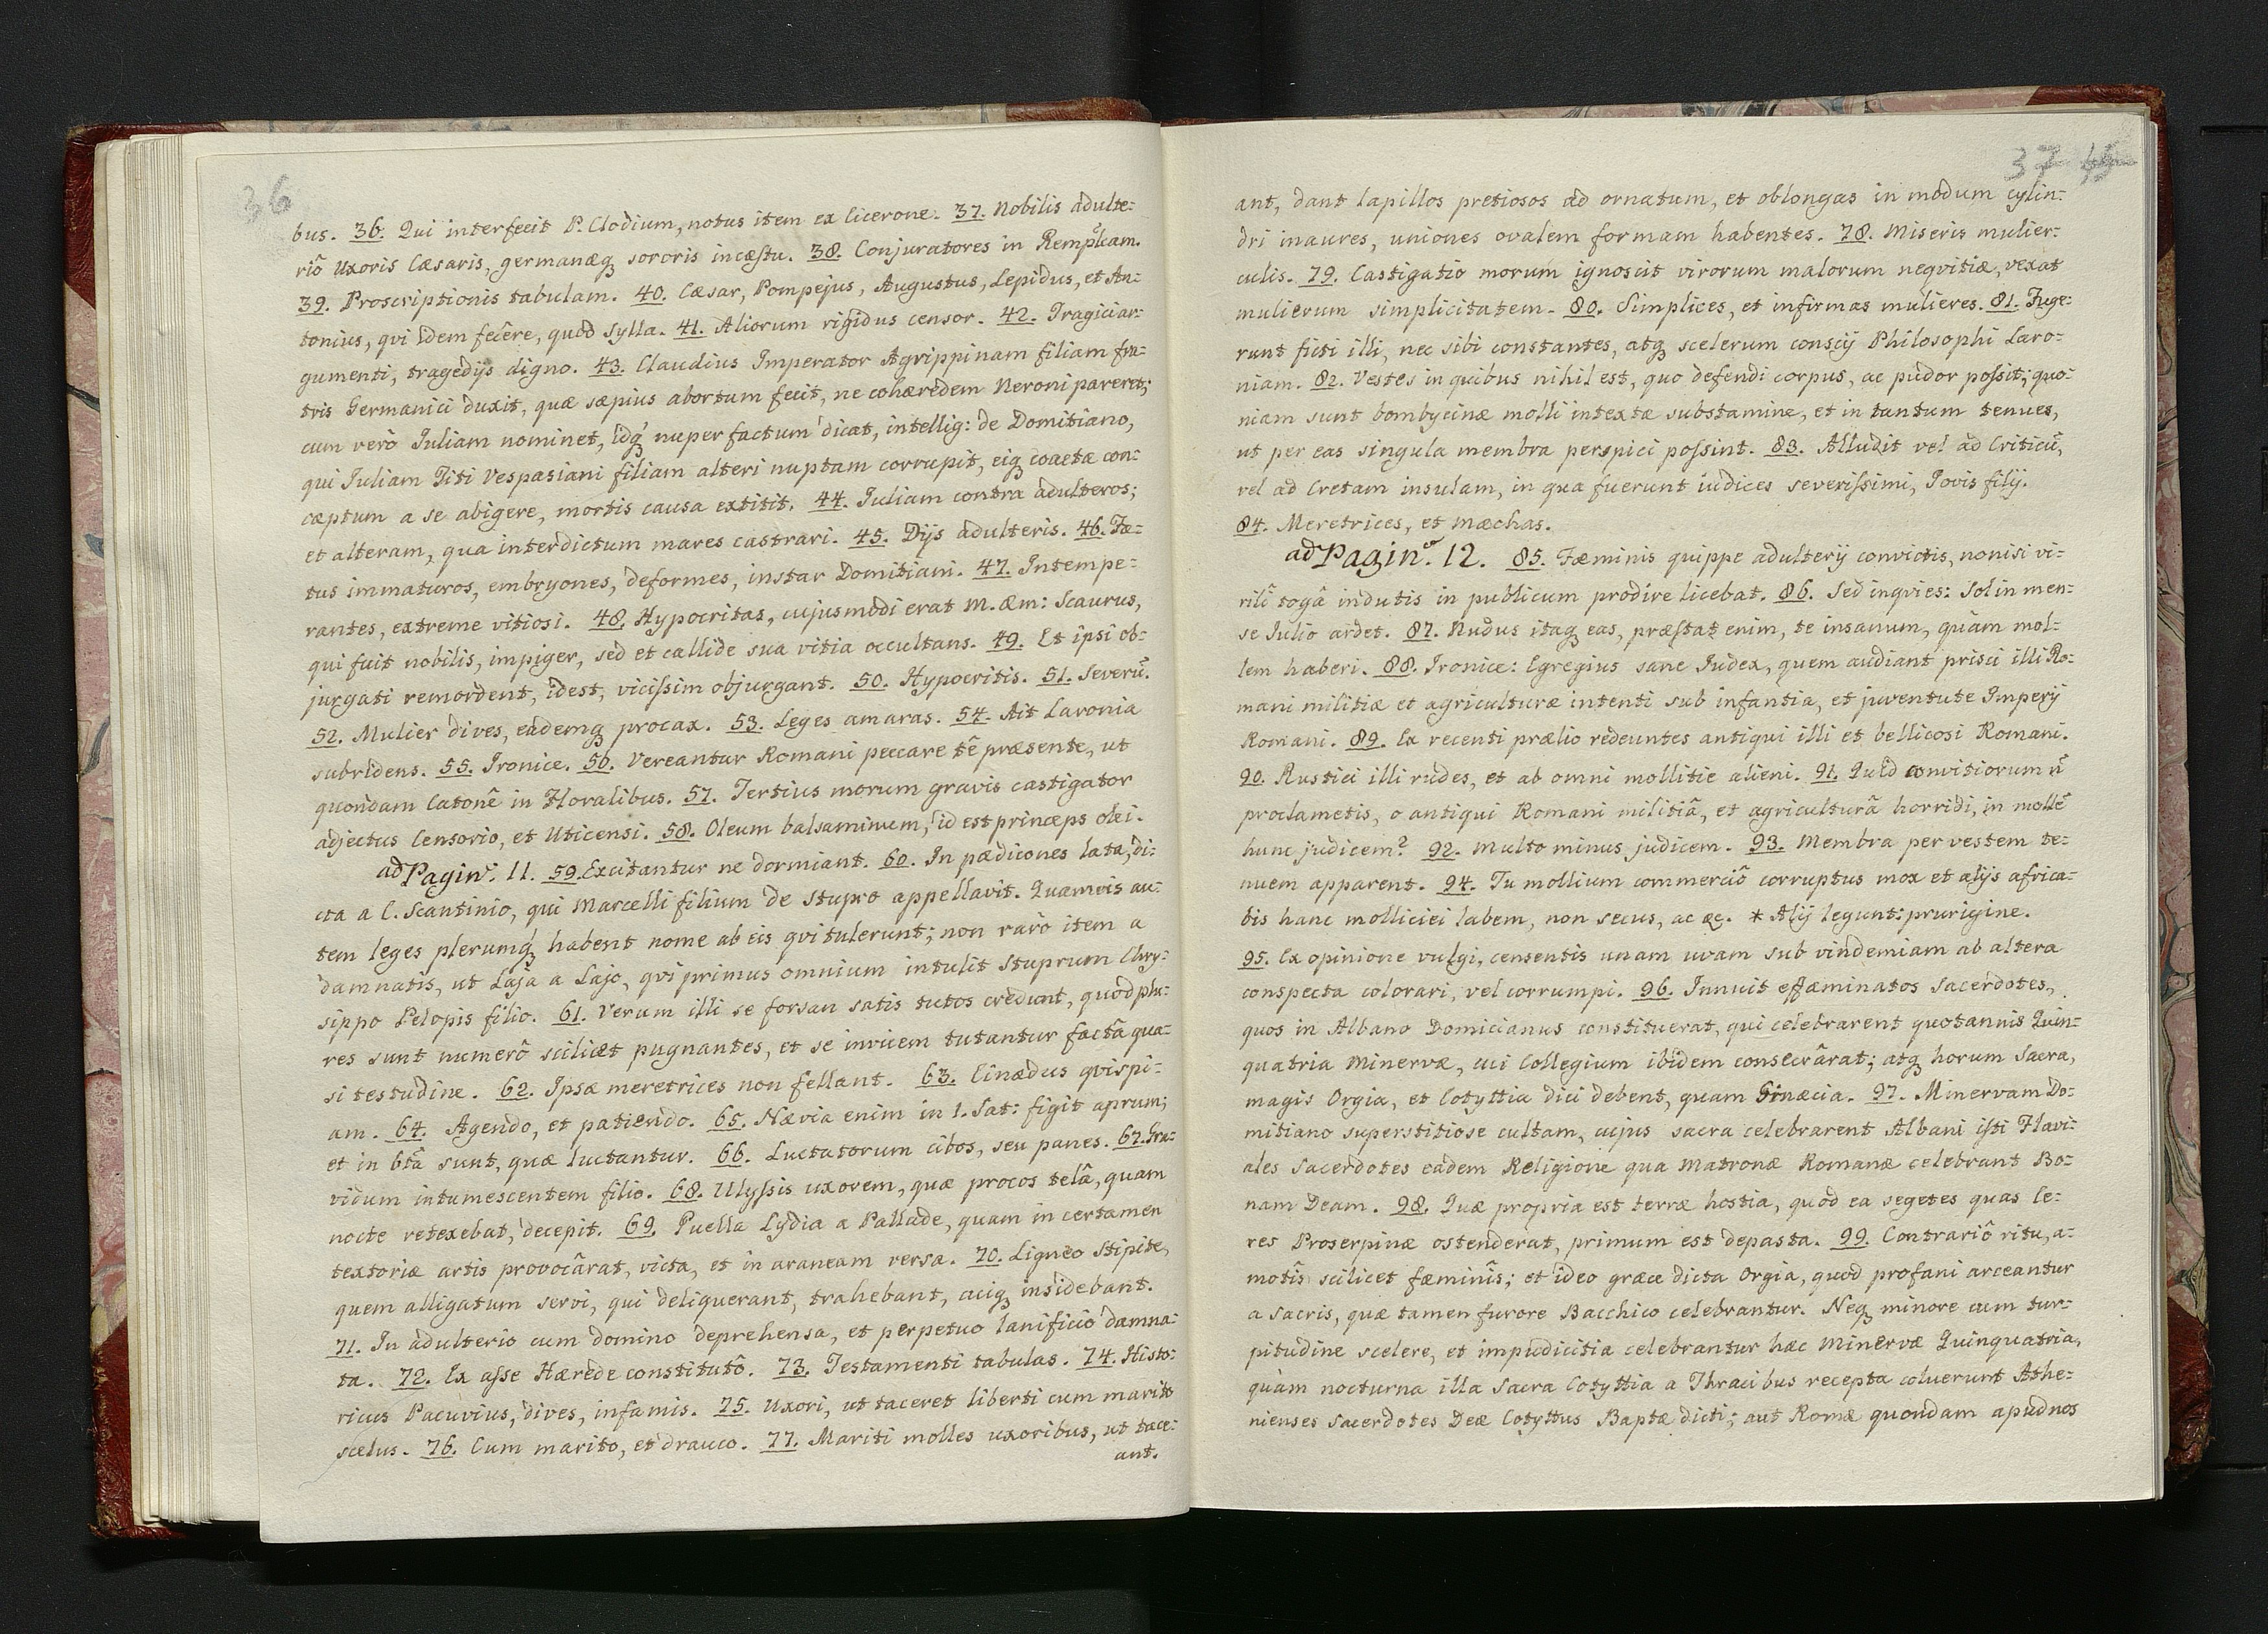 36
bus. 36. Qui interfecit P. Clodium, notus item ex Cicerone. 37. Nobilis adulte:
riô Uxoris Cæsaris, germanæq; sororis incæstu. 38. Conjuratores in Rempłcam.
39. Proscriptionis tabulam. 40. Cæsar, Pompejus, Augustus, Lepidus, et An:
tonius, qvi idem fecêre, quod Sylla. 41. Aliorum rigidus censor. 42. Tragici ar:
gumenti, tragædijs digno. 43. Claudius Imperator Agrippinam filiam fra:
tris Germanici duxit, quæ sæpius abortum fecit, ne cohæredem Neroni pareret;
cum verò Juliam nominet, idq; nuper factum dicat, intellig: de Domitiano,
qui Juliam Titi Vespasiani filiam alteri nuptam corrupit, eiq; coactæ con:
cæptum a se abigere, mortis causa extitit. 44. Juliam contra adulteros;
et alteram, qua interdictum mares castrari. 45. Dijs adulteris. 46. Fæ:
tus immaturos, embryones, deformes, instar Domitiani. 47. Intempe:
rantes, extreme vitiosi. 48. Hypocritas, cujusmodi erat M. Æm: Scaurus,
qui fuit nobilis, impiger, sed et callide sua vitia occultans. 49. Et ipsi ob:
jurgati remordent, idest, vicissim objurgant. 50. Hypocritis. 51. Severũ.
52. Mulier dives, eademq; procax. 53. Leges amaras. 54. Ait Laronia
subridens. 55. Ironice. 56. Vereantur Romani peccare tê præsente, ut
quondam Catonê in Floralibus. 57. Tertius morum gravis castigator
adjectus Censorio, et Uticensi. 58. Oleum balsaminum, id est princæps olei.
ad Pagin: 11. 59. Excitantur ne dormiant. 60. In pædicones lata, di:
cta a C. Scantinio, qui Marcelli filium de stupro appellavit. Quamvis au:
tem leges plerumq; habent nome ab eis qvi tulerunt; non rarò item a
damnatis, ut Laja a Lajo, qvi primus omnium intulit stuprum Chry:
sippo Pelopis filio. 61. Verum illi se forsan satis tutos credunt, quod plu:
res sunt numerô scilicet pugnantes, et se invicem tutantur factâ qua:
si testudine. 62. Ipsæ meretrices non fellant. 63. Cinædus qvispi:
am. 64. Agendo, et patiendo. 65. Nævia enim in 1. Sat: figit aprum;
et in 6tâ sunt, quæ luctantur. 66. Luctatorum cibos, seu panes. 67. Gra:
vidum intumescentem filio. 68. Ulyssis uxorem, quæ procos telâ, quam
nocte retexebat, decepit. 69. Puella Lydia a Pallade, quam in certamen
textoriæ artis provocârat, victa, et in araneam versa. 70. Ligneo stipite,
quem alligatum servi, qui deliquerant, trahebant, cuiq; insidebant.
71. In adulterio cum domino deprehensa, et perpetuo lanificio damna:
ta. 72. Ex asse Hærede constitutô. 73. Testamenti tabulas. 74. Histo:
ricus Pacuvius, dives, infamis. 75. Uxori, ut taceret liberti cum marito
scelus. 76. Cum marito, et drauco. 77. Mariti molles uxoribus, ut tace:
ant.
37 45
ant, dant lapillos pretiosos ad ornatum, et oblongas in modum cylin:
dri inaures, uniones ovalem formam habentes. 78. Miseris mulier:
culis. 79. Castigatio morum ignoscit virorum malorum neqvitiæ, vexat
mulierum simplicitatem. 80. Simplices, et infirmas mulieres. 81. Fuge:
runt ficti illi, nec sibi constantes, atq; scelerum conscij Philosophi Laro:
niam. 82. Vestes in quibus nihil est, quo defendi corpus, ac pudor possit; quo:
niam sunt bombycinæ molli intextæ substamine, et in tantum tenues,
ut per eas singula membra perspici possint. 83. Alludit vel ad Criticũ,
vel ad Cretam insulam, in qua fuerunt iudices severissimi, Jovis filij.
84. Meretrices, et mæchas.
ad Pagin: 12. 85. Fæminis quippe adulterij convictis, nonisi vi:
rili togâ indutis in publicum prodire licebat. 86. Sed inqvies: Sol in men:
se Julio ardet. 87. Nudus itaq; eas, præstat enim, te insanum, quàm mol:
lem haberi. 88. Ironice: Egregius sane Judex, quem audiant prisci illi Ro:
mani militiæ et agriculturæ intenti sub infantia, et juventute Imperij
Romani. 89. Ex recenti prælio redeuntes antiqui illi et bellicosi Romani.
90. Rustici illi rudes, et ab omni mollitie alieni. 91. Quid convitiorum ñ
proclametis, o antiqui Romani militiâ, et agriculturâ horridi, in mollẽ
hunc judicem? 92. Multo minus judicem. 93. Membra per vestem te:
nuem apparent. 94. Tu mollium commerciô corruptus mox et alijs africa:
bis hanc molliciei labem, non secus, ac &c. * Alij legunt: prurigine.
95. Ex opinione vulgi, censentis unam uvam sub vindemiam ab altera
conspecta colorari, vel corrumpi. 96. Innuit effæminatos sacerdotes,
quos in Albano Domicianus constituerat, qui celebrarent quotannis Quin:
quatria Minervæ, cui Collegium ibidem consecrârat; atq; horum Sacra,
magis Orgia, et Cotyttia dici debent, quam Ginæcia. 97. Minervam Do:
mitiano superstitiose cultam, cujus sacra celebrarent Albani isti Flavi:
ales Sacerdotes eadem Religione qua Matronæ Romanæ celebrant Bo:
nam Deam. 98. Quæ propria est terræ hostia, quod ea segetes quas Ce:
res Proserpinæ ostenderat, primum est depasta. 99. Contrariô ritu, a:
motîs scilicet fæminîs; et ideo græce dicta Orgia, quod profani arceantur
a Sacris, quæ tamen furore Bacchico celebrantur. Neq; minore cum tur:
pitudine scelere, et impudicitia celebrantur hæc Minervæ Quinquatria,
quàm nocturna illa Sacra Cotyttia a Thracibus recepta coluerunt Athe:
nienses Sacerdotes Deæ Cotyttus Baptæ dicti; aut Romæ quondam apud nos